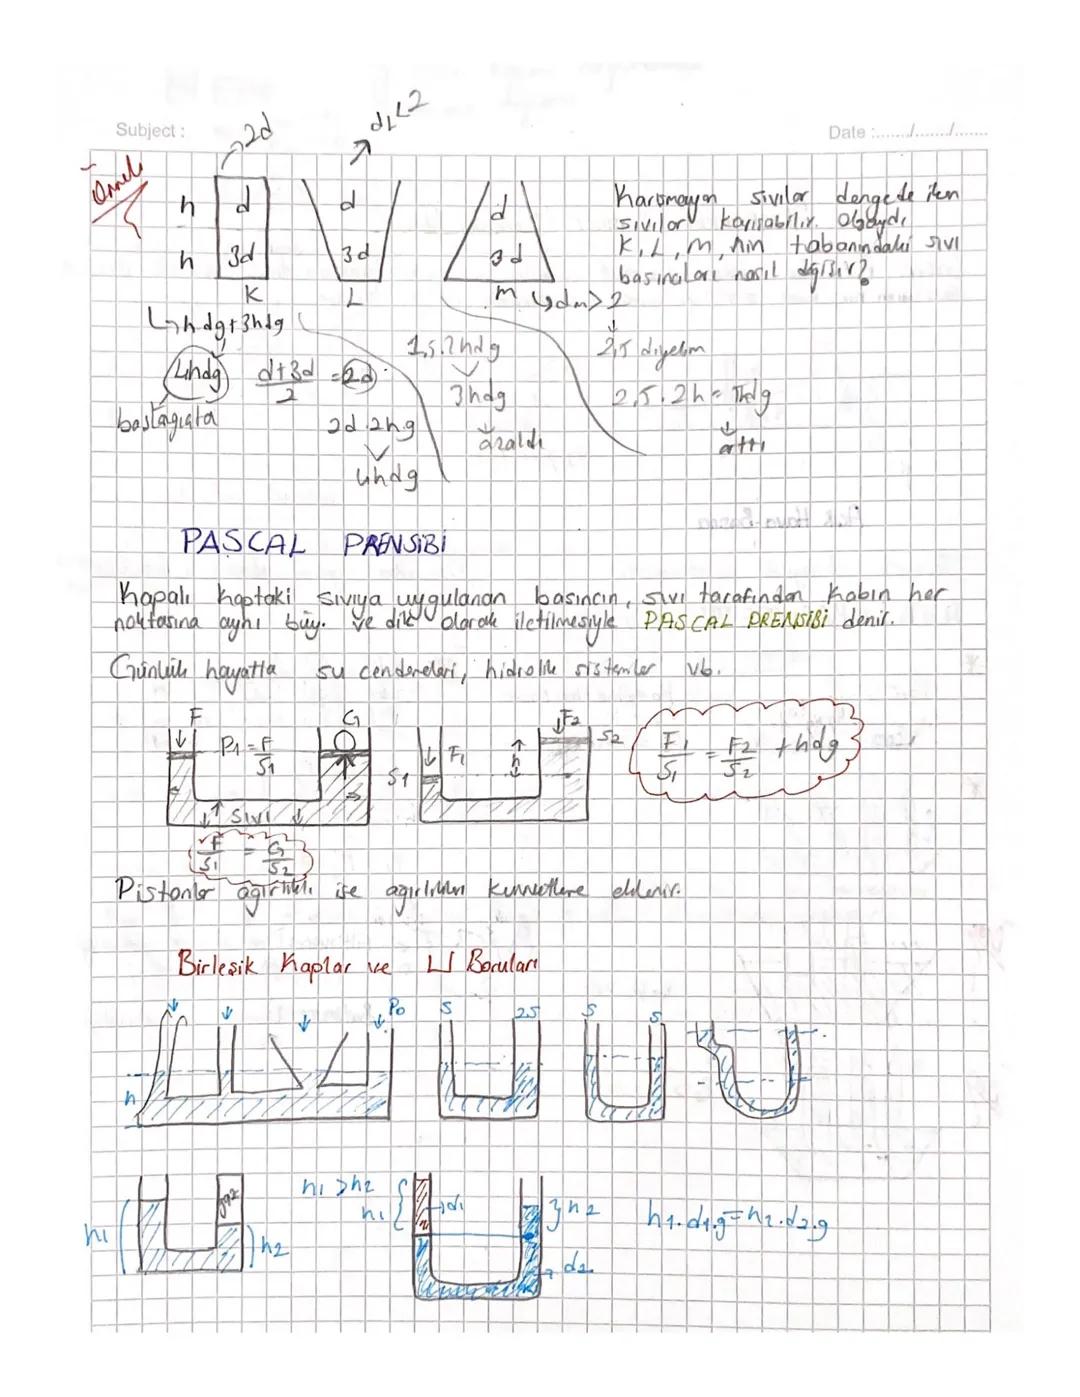 Subject :
Date :......./......./.......
Örnek
2d
dL<2
h d
h 3d
K
d
3d
L
d
3d
m
dm>2
Karışmayan sıvılar dengede iken
sıvılar karışabilir olsaydı
K, L, m, nin tabanındaki sıvı
basınçları nasıl değişir?
hdg+3hdg
4hdg
başlangıçta
d+3d/2 = 2d
2d.2hg
4hdg
1,5.2hdg
3hdg
azaldı
2,5 diyelim
2,5.2h=
arttı
PASCAL PRENSİBİ
Kapalı kaptaki sıvıya uygulanan basıncın, sıvı tarafından kabın her
noktasına aynı büy. ve dik olarak iletilmesiyle PASCAL PRENSİBİ denir.
Günlük hayatta su cendereleri, hidrolik sistemler vb.
F
P1=F/S1
G
sıvı
F/S1 = G/S2
S1
F1
h
F2
S2
F1/S1 = F2/S2 + hdg
Pistonlar ağırlıklı ise ağırlıkları kuvvetlere eklenir.
Birleşik Kaplar ve U Boruları
h
Po
S 2S
S S
h1
gaz
h2
h1>h2
h1
d1
h2
d2
h1.d1.g=h2.d2.g